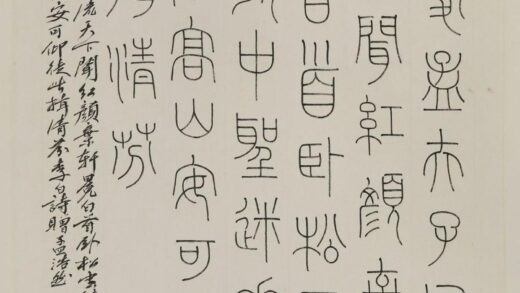 孟夫子
聞紅顏棄
首臥松
中聖迷
高山安可
清芬
流天下聞紅顏棄軒冕白首臥松雲
安可仰徒此揖清芬李白詩贈孟浩然